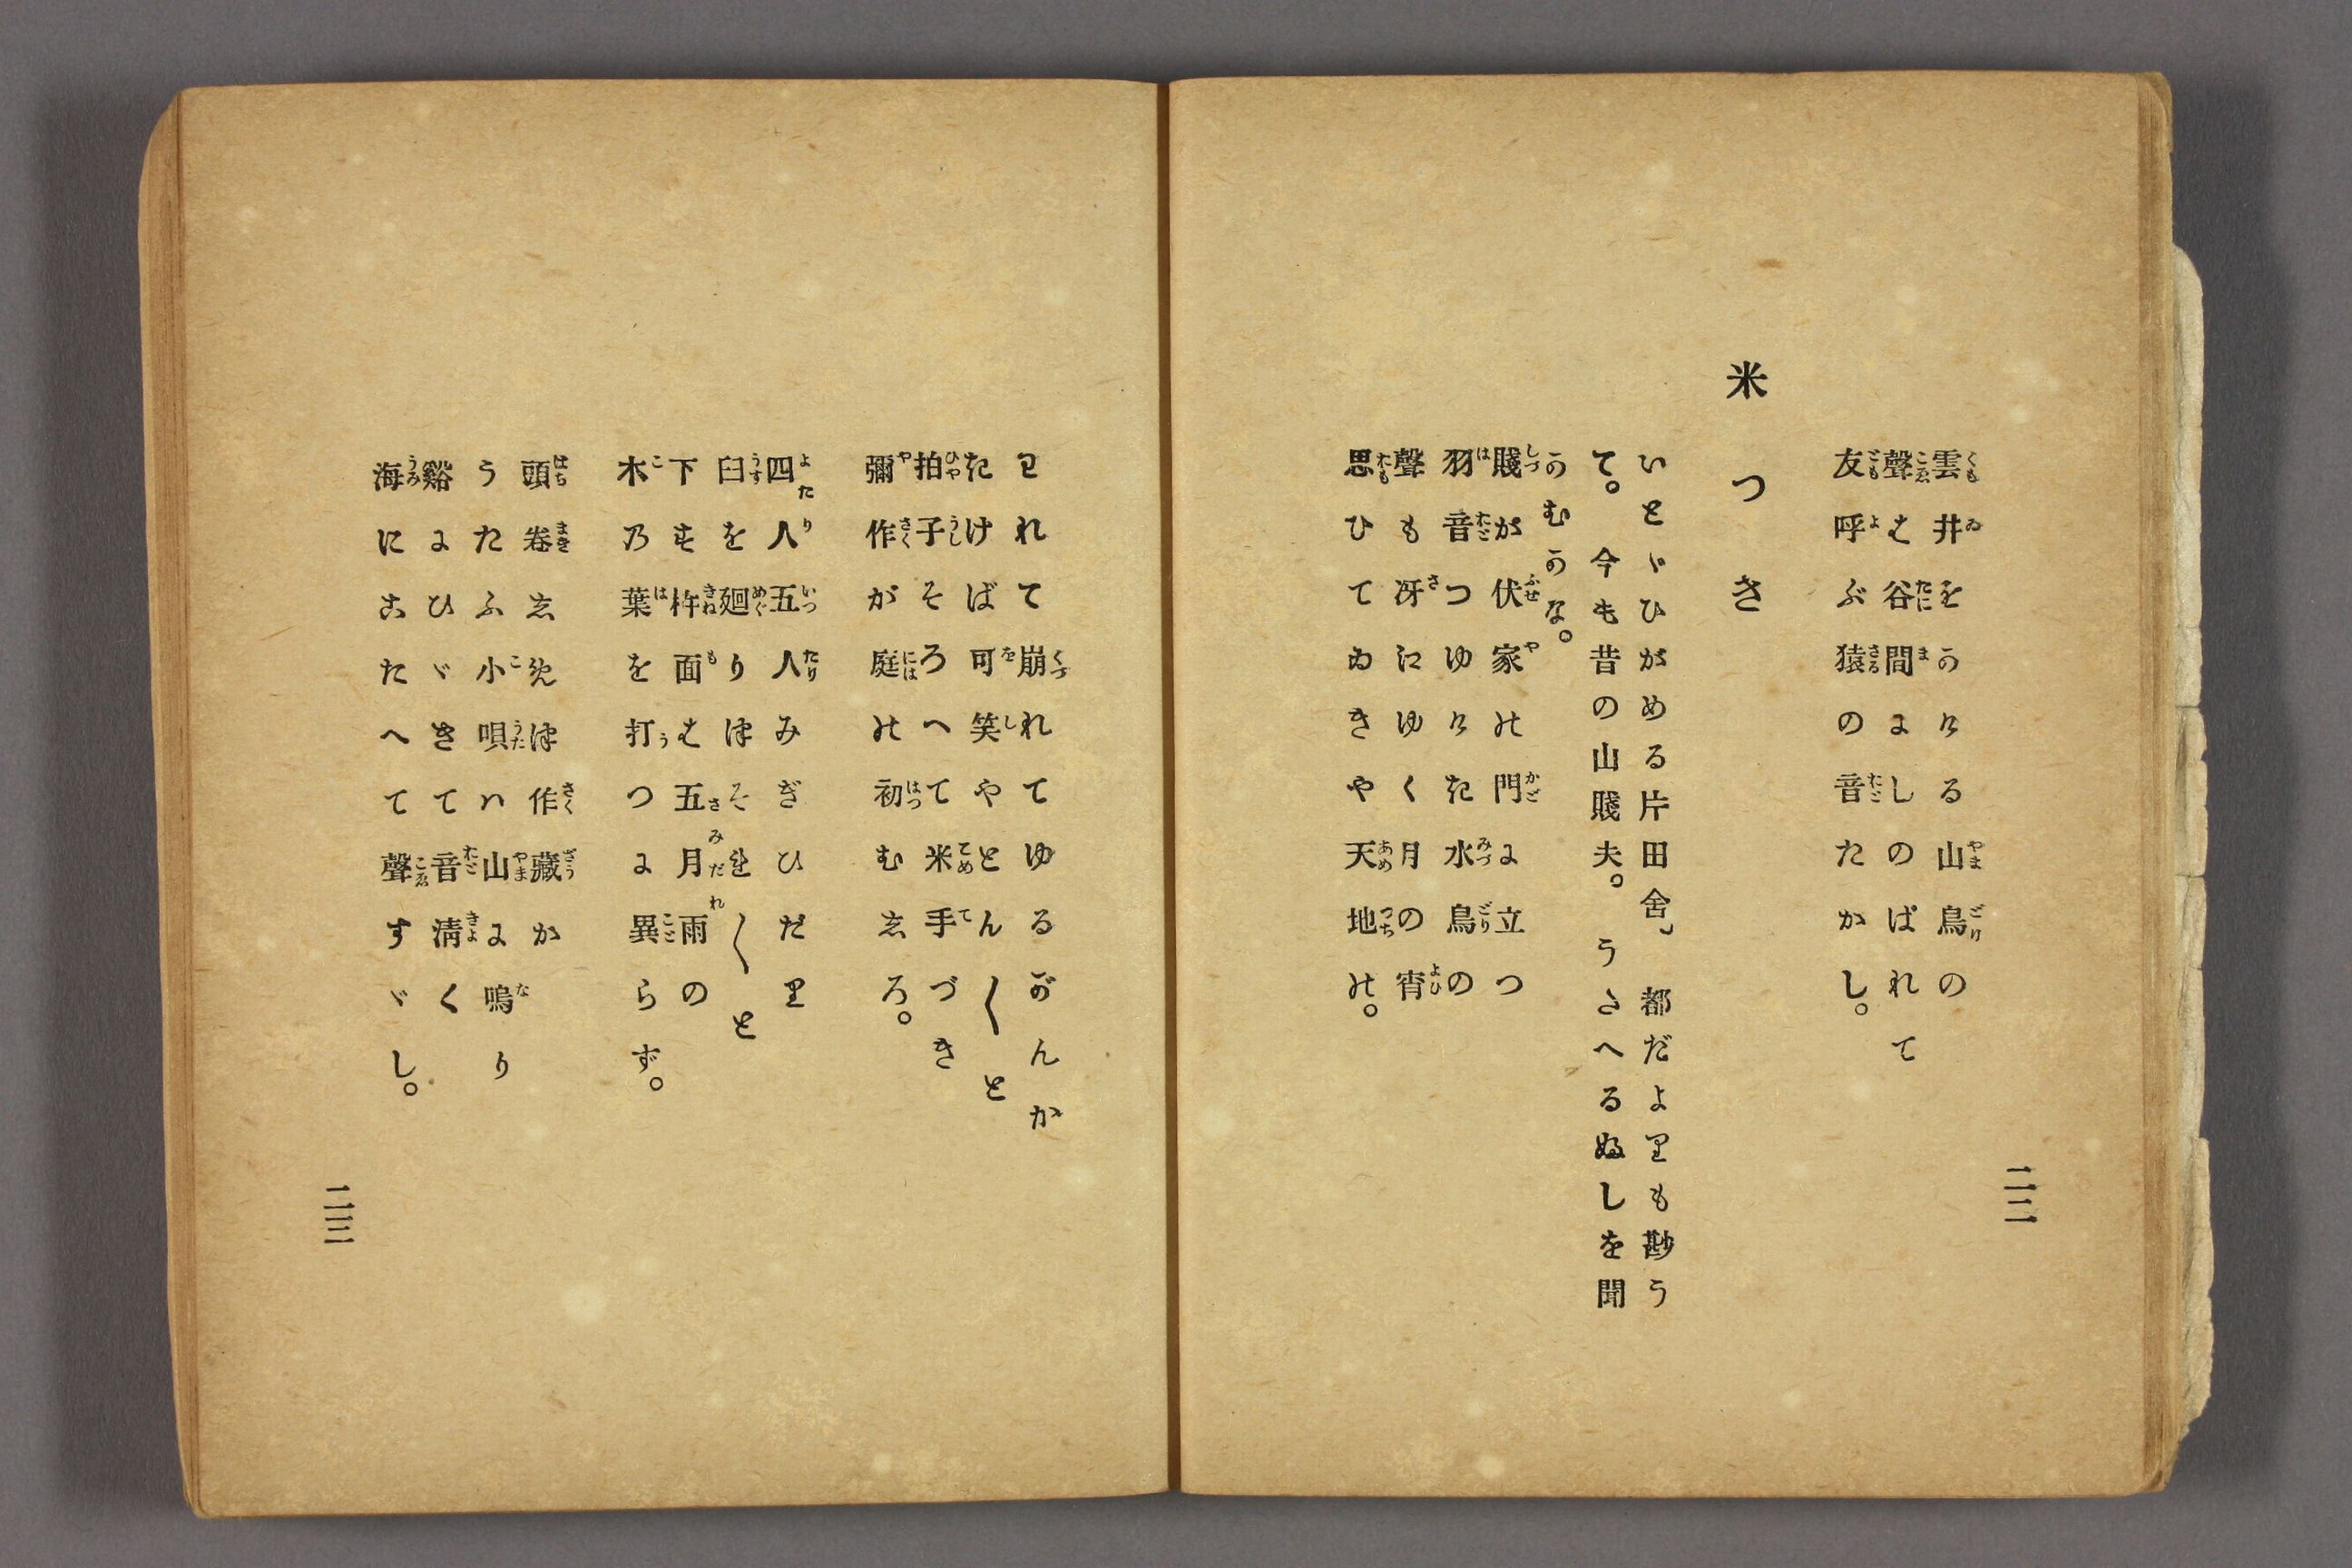 雲井をかける山鳥の
聲は谷間にしのばれて
友呼ぶ猿の音たかし。
米つき
いとゞひがめる片田舍、都だよりも尠う
て。今も昔の山賤夫。うさへるぬしを聞
かむかな。
賤が伏家の門に立つ
羽音つゆけき水鳥の
聲も冴にゆく月の宵
思ひてゐきや天地の。
二二
われて崩れてゆるがんか
たけば可笑しやとん〳〵と
拍子そろへて米手づき
彌作が庭の初むしろ。
四人五人みぎひだり
臼を廻りほそ〳〵と
下す杵面は五月雨の
木の葉を打つに異らず。
頭卷しめほ作藏か
うたふ小唄ハ山に鳴り
谿にひゞきて音淸く
海にこたへて聲すゞし。
二三